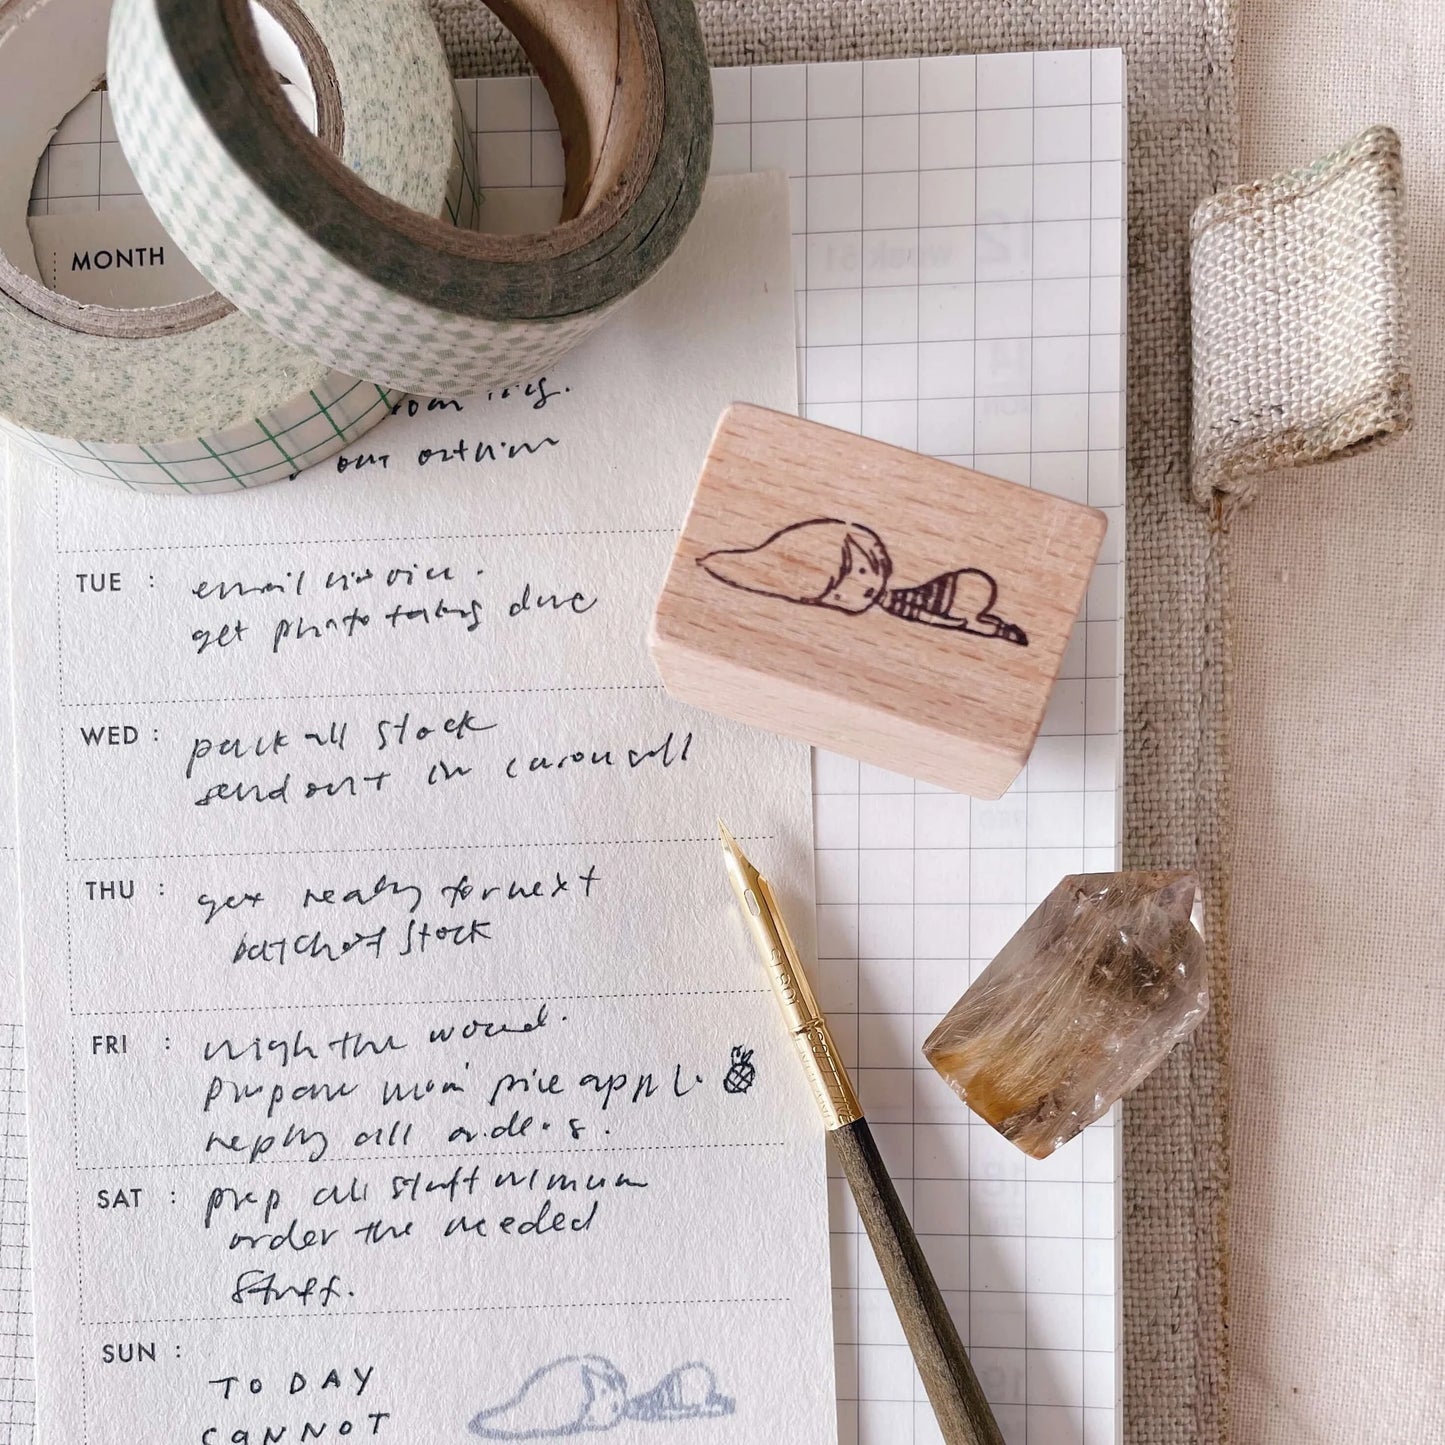 MONTH
out
TUE :
email invoice.
get photo taking done
WED :
pack all stock
send out in carousell
THU :
get ready for next
batch of stock
FRI :
weigh the wound.
prepare mom pineapple.
reply all orders.
SAT :
prep all stuff
order the needed
stuff.
SUN :
TODAY
CANNOT
12 week 51